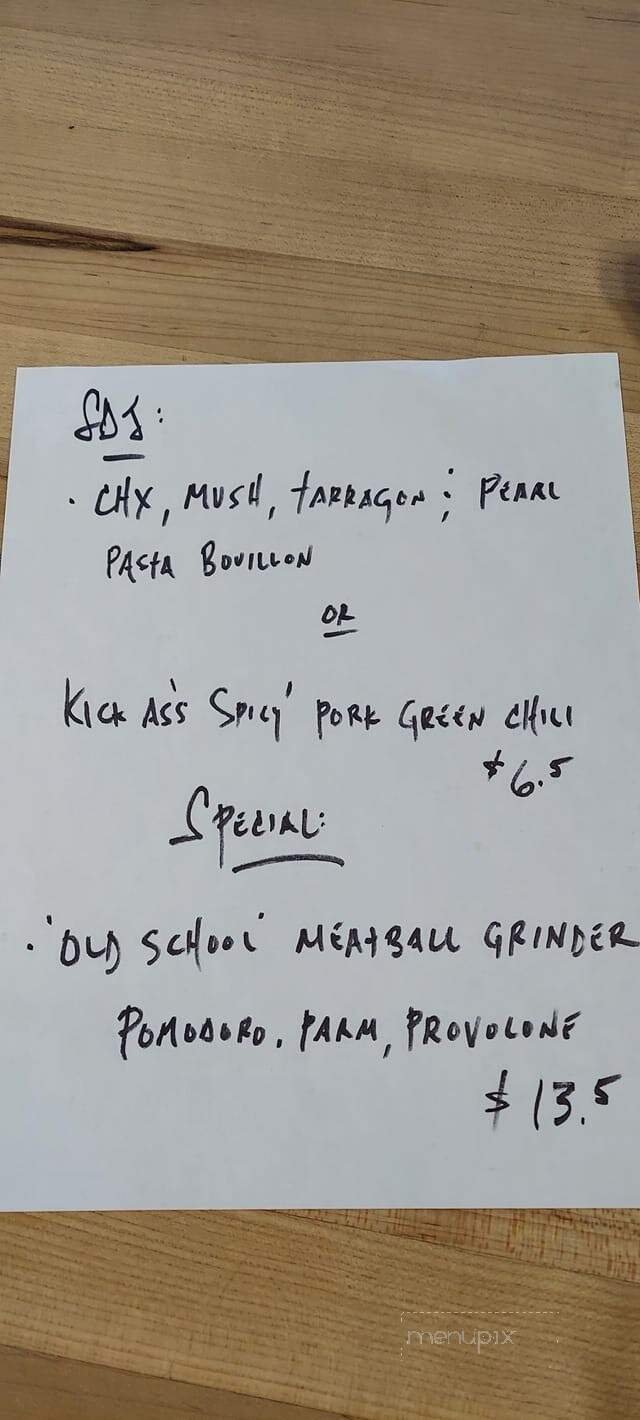 SDJ:
· CHX, MUSH, TARRAGON ; PEARL
PASTA BOUILLON
OR
KICK ASS 'SPICY' PORK GREEN CHILI
$6.5
SPECIAL:
· 'OLD SCHOOL' MEATBALL GRINDER
POMODORO, PARM, PROVOLONE
$13.5
menupix